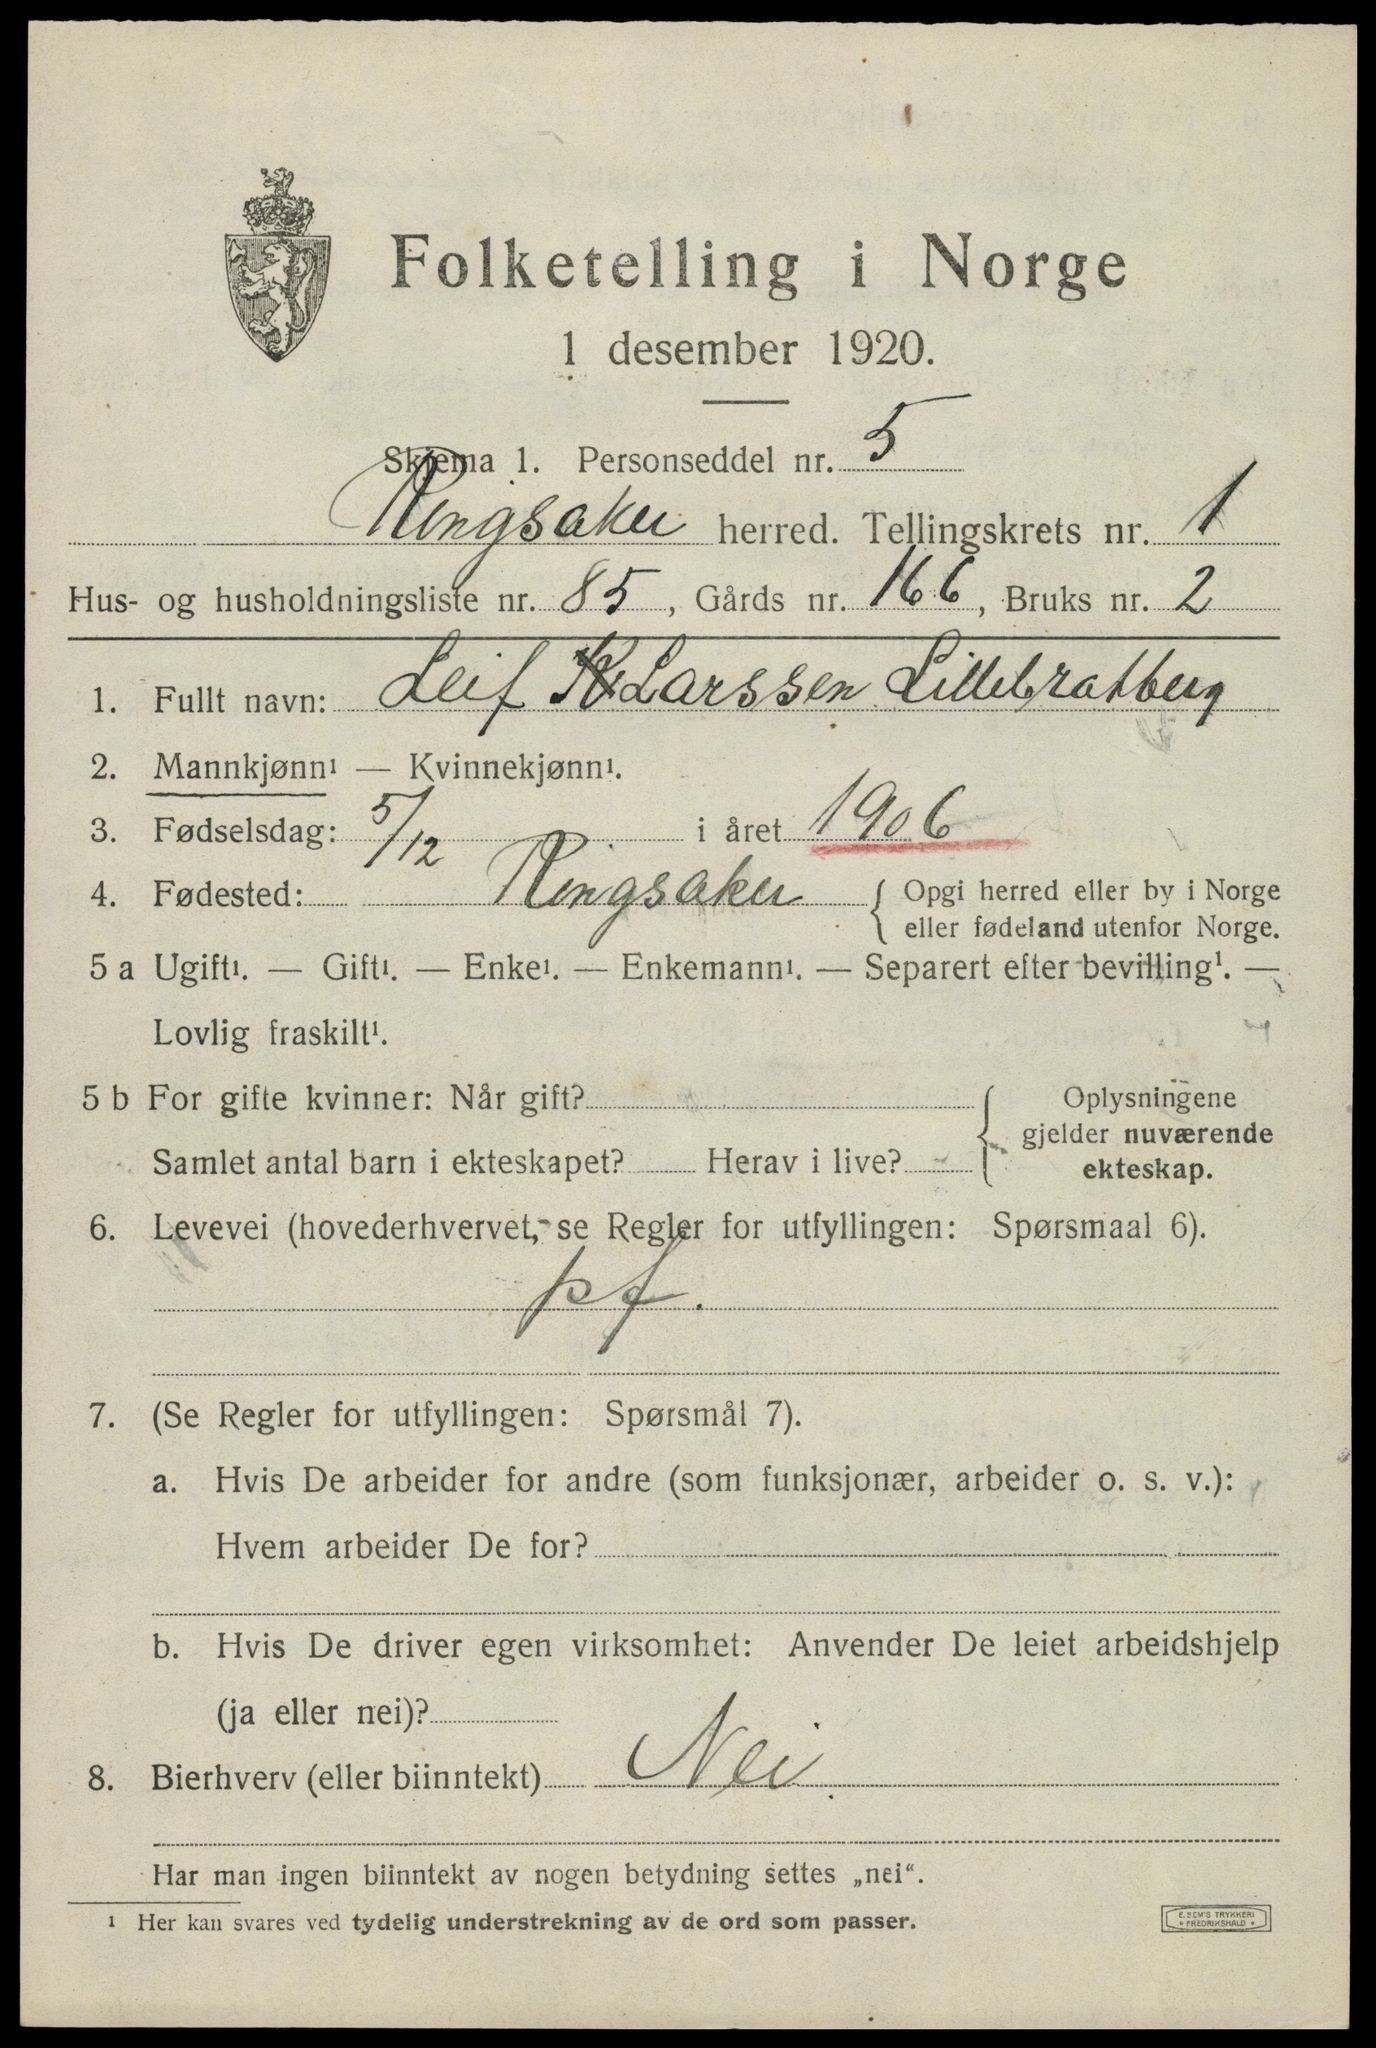 Folketelling i Norge
1 desember 1920.
Skjema 1. Personseddel nr. 5
Ringsaker herred. Tellingskrets nr. 1
Hus- og husholdningsliste nr. 85, Gårds nr. 166, Bruks nr. 2
1. Fullt navn: Leif Larssen Lillebratberg
2. Mannkjønn¹ — Kvinnekjønn¹.
3. Fødselsdag: 5/12 i året 1906
4. Fødested: Ringsaker { Opgi herred eller by i Norge
eller fødeland utenfor Norge.
5 a Ugift¹. — Gift¹. — Enke¹. — Enkemann¹. — Separert efter bevilling¹. —
Lovlig fraskilt¹.
5 b For gifte kvinner: Når gift?
Samlet antal barn i ekteskapet? Herav i live?
{ Oplysningene
gjelder nuværende
ekteskap.
6. Levevei (hovederhvervet, se Regler for utfyllingen: Spørsmaal 6).
pf.
7. (Se Regler for utfyllingen: Spørsmål 7).
a. Hvis De arbeider for andre (som funksjonær, arbeider o. s. v.):
Hvem arbeider De for?
b. Hvis De driver egen virksomhet: Anvender De leiet arbeidshjelp
(ja eller nei)?
8. Bierhverv (eller biinntekt) Nei
Har man ingen biinntekt av nogen betydning settes „nei“.
¹ Her kan svares ved tydelig understrekning av de ord som passer.
E. SEM'S TRYKKERI
• FREDRIKSHALD •